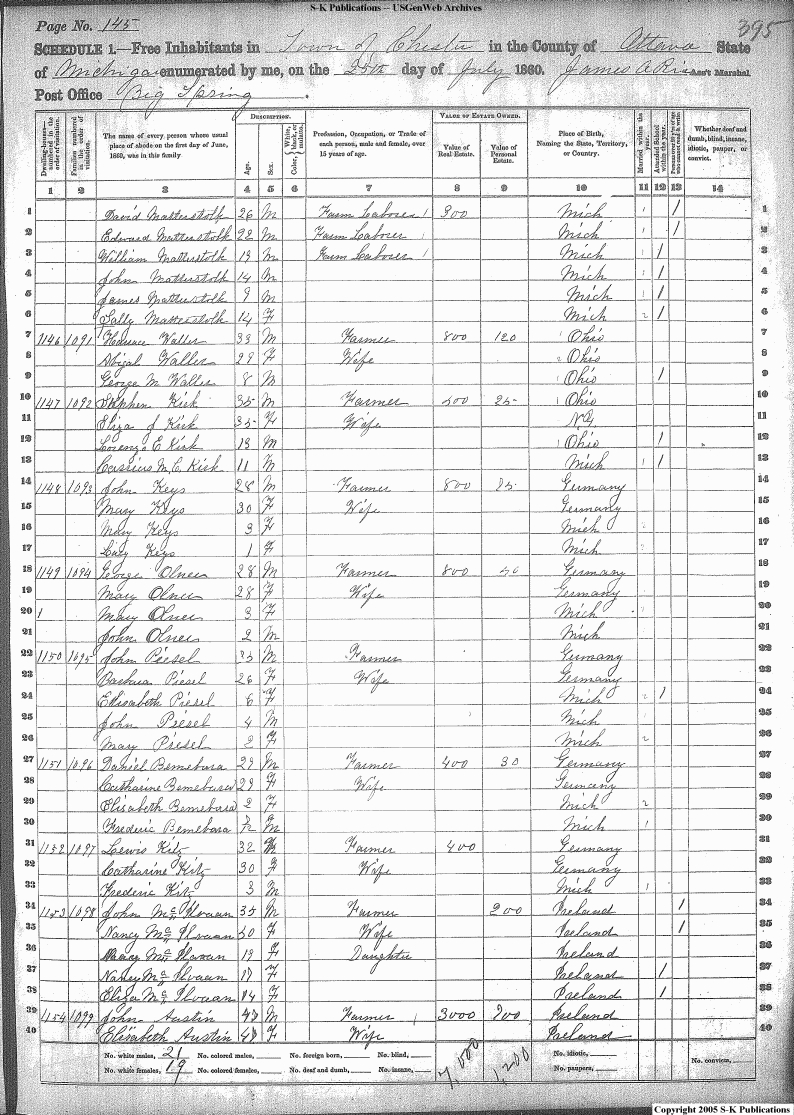 S-K Publications – USGenWeb Archives
Page No. 145
395
SCHEDULE 1.—Free Inhabitants in Town of Chester in the County of Ottawa State
of Michigan enumerated by me, on the 25th day of July 1860. James A Ass't Marshal
Post Office Big Spring.
Dwelling-houses—numbered in the order of visitation.
Families numbered in the order of visitation.
The name of every person whose usual place of abode on the first day of June, 1860, was in this family
DESCRIPTION.
Age.
Sex.
Color, White, black, or mulatto.
Profession, Occupation, or Trade of each person, male and female, over 15 years of age.
VALUE OF ESTATE OWNED.
Value of Real Estate.
Value of Personal Estate.
Place of Birth, Naming the State, Territory, or Country.
Married within the year.
Attended School within the year.
Persons over 20 y'rs of age who cannot read & write
Whether deaf and dumb, blind, insane, idiotic, pauper, or convict.
1 2 3 4 5 6 7 8 9 10 11 12 13 14
1 David Matterstolk 26 M Farm Laborer 1 300 Mich 1 / 1
2 Edward Matterstolk 22 M Farm Laborer 1 Mich 1 / 2
3 William Matterstolk 19 M Farm Laborer 1 Mich 1 / 3
4 John Matterstolk 14 M Mich 1 / 4
5 James Matterstolk 9 M Mich 1 / 5
6 Sally Matterstolk 14 F Mich 2 / 6
7 1146 1091 Horace Waller 33 M Farmer 800 120 Ohio 7
8 Abigal Waller 29 F Wife Ohio 8
9 George M Waller 8 M Ohio / 9
10 1147 1092 Stephen Kirk 35 M Farmer 500 25 Ohio 10
11 Eliza J Kirk 35 F Wife N.Y. 11
12 Lorenzo E Kirk 13 M Ohio / 12
13 Cassius M. C. Kirk 11 M Mich / 13
14 1148 1093 John Keys 28 M Farmer 800 25 Germany 14
15 Mary Keys 30 F Wife Germany 15
16 Mary Keys 3 F Mich 2 16
17 Lucy Keys 1 F Mich 2 17
18 1149 1094 George Olner 28 M Farmer 800 50 Germany 18
19 Mary Olner 28 F Wife Germany 19
20 Mary Olner 3 F Mich 20
21 John Olner 2 M Mich 21
22 1150 1095 John Piesel 33 M Farmer Germany 22
23 Barbara Piesel 26 F Wife Germany 23
24 Elisabeth Piesel 6 F Mich 2 / 24
25 John Piesel 4 M Mich 25
26 Mary Piesel 2 F Mich 2 26
27 1151 1096 Daniel Bemebara 29 M Farmer 400 30 Germany 27
28 Catharine Bemebara 29 F Wife Germany 28
29 Elisabeth Bemebara 2 F Mich 2 29
30 Frederic Bemebara M Mich 1 30
31 1152 1097 Lewis Kitz 32 M Farmer 400 Germany 31
32 Catharine Kitz 30 F Wife Germany 32
33 Frederic Kitz 3 M Mich 1 33
34 1153 1098 John Mc Ilvaan 35 M Farmer 200 Ireland / 34
35 Nancy Mc Ilvaan 50 F Wife Ireland / 35
36 Mc Ilvaan 19 F Daughter Ireland 36
37 Nancy Mc Ilvaan 17 F Ireland / 37
38 Eliza Mc Ilvaan 14 F Ireland / 38
39 1154 1099 John Austin M Farmer 1 3000 200 Ireland 39
40 Elisabeth Austin F Wife Ireland 40
No. white males, 21 No. colored males, No. foreign born, No. blind, 7,000 1,200 No. idiotic, No. convicts,
No. white females, 19 No. colored females, No. deaf and dumb, No. insane, No. paupers,
Copyright 2005 S-K Publications